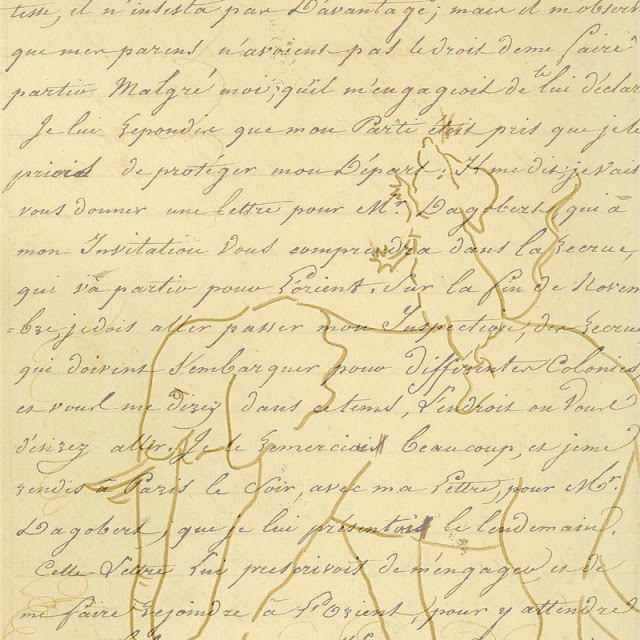 il n'insista par Davantage; mais il m'observ
que mes parens n'avoient pas le droit de me faire
partir Malgré moi, qu'il m'engageoit de le lui déclar
Je lui Repondis que mon Parti étoit pris que je le
priois de protéger mon Départ; Il me dit, je vais
vous donner une lettre pour Mr. Dagobert, qui à
mon Invitation Vous comprendra dans la Recrue,
qui va partir pour Lorient. Sur la fin de Novem
=bre, je dois aller passer mon Inspection, des Recrues
qui doivent S'embarquer pour differentes Colonies,
et vous me direz dans ce tems, L'endroit ou Vous
désirez aller. Je le Remerciois beaucoup, et je me
rendis à Paris le Soir, avec ma Lettre, pour Mr.
Dagobert, que je lui présentois le lendemain.
Cette Lettre Lui prescrivoit de m'engager et de
me faire Rejoindre à L'Orient, pour y attendre